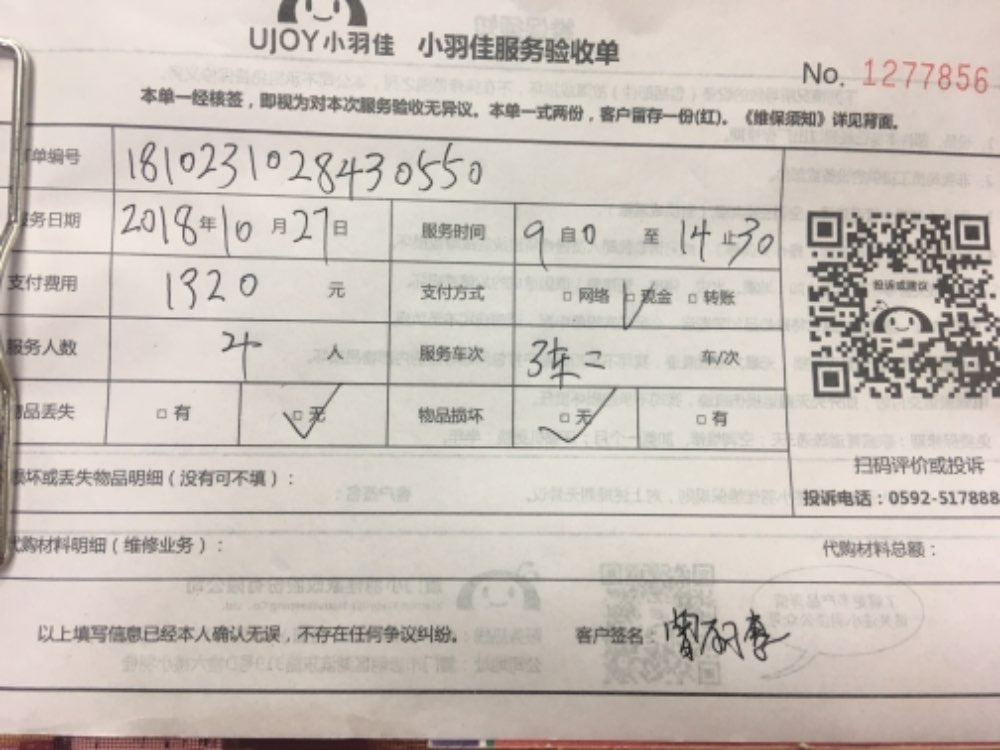 UJOY小羽佳 小羽佳服务验收单
No. 1277856
本单一经核签，即视为对本次服务验收无异议。本单一式两份，客户留存一份(红)。《维保须知》详见背面。
单编号 1810231028430550
务日期 2018年10月27日 服务时间 9自0至14止30
支付费用 1320元 支付方式 □网络 □现金 □转账
服务人数 4人 服务车次 3车 车/次
品丢失 □有 □无 物品损坏 □无 □有
投诉或建议
损坏或丢失物品明细（没有可不填）：
扫码评价或投诉
投诉电话：0592-517888
代购材料明细（维修业务）：
代购材料总额：
以上填写信息已经本人确认无误，不存在任何争议纠纷。
客户签名：